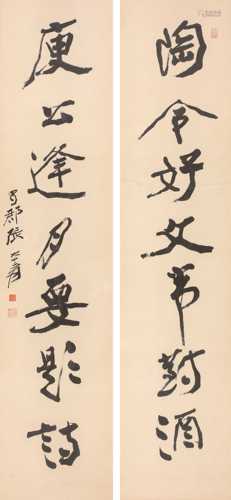 陶令好文常對酒
庾公逢月要題詩
蜀郡張大千爰